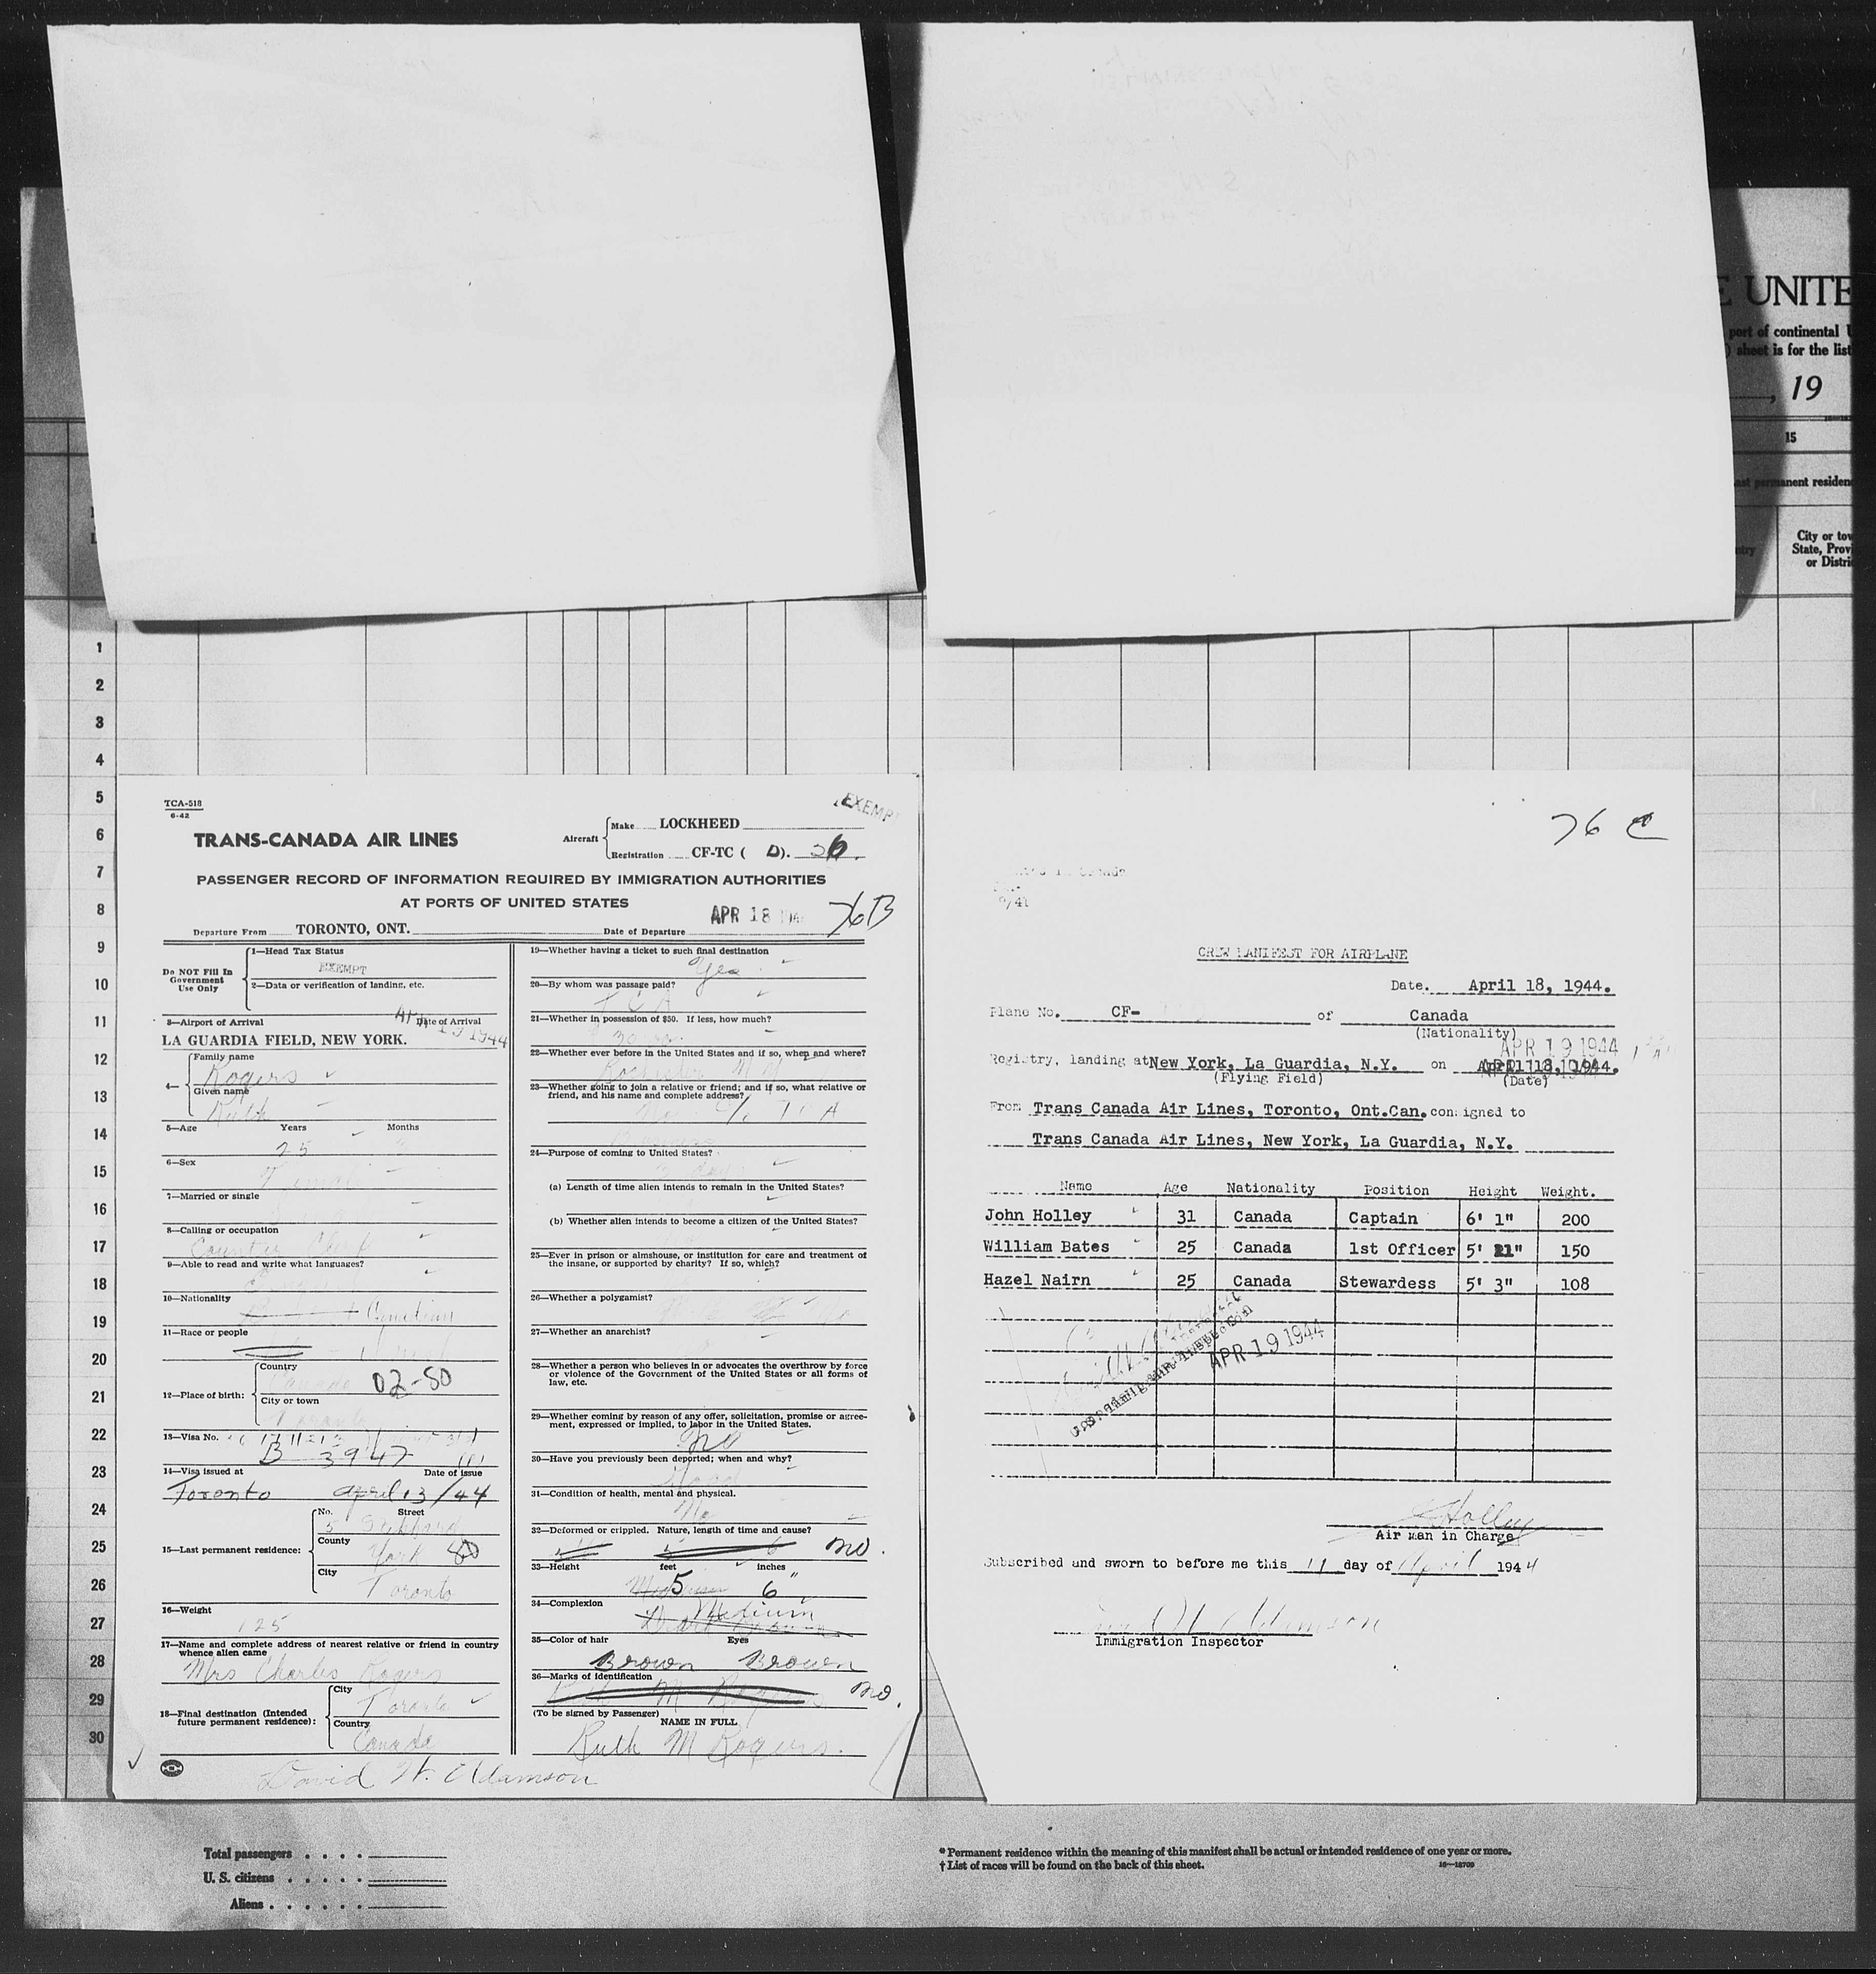 E UNITE
port of continental U
) sheet is for the list
, 19
15
ast permanent residen
ntry
City or tow
State, Provi
or Distri
1
2
3
4
5
6
7
8
9
10
11
12
13
14
15
16
17
18
19
20
21
22
23
24
25
26
27
28
29
30
TCA-518
6-42
EXEMP
TRANS-CANADA AIR LINES
Aircraft
Make LOCKHEED
Registration CF-TC ( D). 6.
PASSENGER RECORD OF INFORMATION REQUIRED BY IMMIGRATION AUTHORITIES
AT PORTS OF UNITED STATES
APR 18 194 76B
Departure From TORONTO, ONT. Date of Departure
Do NOT Fill In
Government
Use Only
1—Head Tax Status
EXEMPT
2—Data or verification of landing, etc.
3—Airport of Arrival Date of Arrival
LA GUARDIA FIELD, NEW YORK. 19 1944
4—
Family name
Rogers
Given name
Ruth
5—Age Years Months
25
6—Sex
7—Married or single
8—Calling or occupation
Counter
9—Able to read and write what languages?
10—Nationality
Canadian
11—Race or people
12—Place of birth:
Country
Canada 02-80
City or town
Toronto
13—Visa No.
B 3947
14—Visa issued at Date of issue
Toronto April 13/44
15—Last permanent residence:
No. Street
5
County
York 80
City
Toronto
16—Weight
125
17—Name and complete address of nearest relative or friend in country
whence alien came
Mrs Charles Rogers
18—Final destination (Intended
future permanent residence):
City
Toronto
Country
Canada
David W. Adamson
19—Whether having a ticket to such final destination
Yes
20—By whom was passage paid?
T C A
21—Whether in possession of $50. If less, how much?
30
22—Whether ever before in the United States and if so, when and where?
Rochester N Y
23—Whether going to join a relative or friend; and if so, what relative or
friend, and his name and complete address?
No c/o T C A
24—Purpose of coming to United States?
(a) Length of time alien intends to remain in the United States?
(b) Whether alien intends to become a citizen of the United States?
25—Ever in prison or almshouse, or institution for care and treatment of
the insane, or supported by charity? If so, which?
26—Whether a polygamist?
No
27—Whether an anarchist?
28—Whether a person who believes in or advocates the overthrow by force
or violence of the Government of the United States or all forms of
law, etc.
29—Whether coming by reason of any offer, solicitation, promise or agree-
ment, expressed or implied, to labor in the United States.
no
30—Have you previously been deported; when and why?
Good
31—Condition of health, mental and physical.
No
32—Deformed or crippled. Nature, length of time and cause?
no.
33—Height feet inches
5 6"
34—Complexion
Medium
35—Color of hair Eyes
Brown Brown
36—Marks of identification
Ruth M Rogers no.
(To be signed by Passenger)
NAME IN FULL
Ruth M Rogers.
76 C
9/41
CREW MANIFEST FOR AIRPLANE
Date. April 18, 1944.
Plane No. CF- of Canada
(Nationality)
APR 19 1944
Registry, landing at New York, La Guardia, N.Y. on April 18, 1944.
(Flying Field) (Date)
From Trans Canada Air Lines, Toronto, Ont.Can. consigned to
Trans Canada Air Lines, New York, La Guardia, N.Y.
Name Age Nationality Position Height Weight.
John Holley 31 Canada Captain 6' 1" 200
William Bates 25 Canada 1st Officer 5' 11" 150
Hazel Nairn 25 Canada Stewardess 5' 3" 108
APR 19 1944
Holley
Air Man in Charge
Subscribed and sworn to before me this day of April 1944
Adamson
Immigration Inspector
Total passengers
U. S. citizens
Aliens
* Permanent residence within the meaning of this manifest shall be actual or intended residence of one year or more.
† List of races will be found on the back of this sheet.